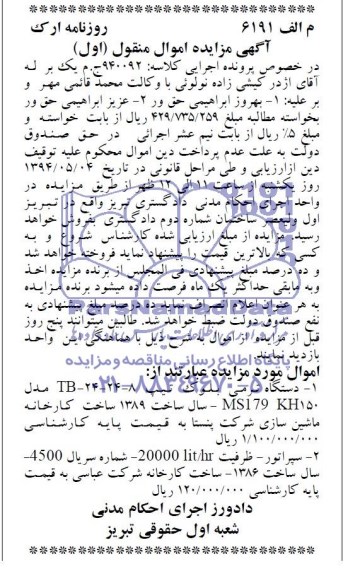 م الف ۶۱۹۱ روزنامه ارک
آگهی مزایده اموال منقول (اول)
در خصوص پرونده اجرایی کلاسه: ۹۴۰۰۹۲ج.م یک بر له
آقای اژدر کیشی زاده نولوئی با وکالت محمد قائمی مهر و
بر علیه: ۱- بهروز ابراهیمی حق ور ۲- عزیز ابراهیمی حق ور
بخواسته مطالبه مبلغ ۴۲۹/۷۳۵/۲۵۹ ریال از بابت خواسته و
مبلغ ۵٪ ریال از بابت نیم عشر اجرائی در حق صندوق
دولت به علت عدم پرداخت دین اموال محکوم علیه توقیف
دین ازارزیابی و طی مراحل قانونی در تاریخ ۱۳۹۴/۰۵/۰۴
روز یکشنبه از ساعت ۱۱ الی ۱۲ ظهر از طریق مزایده در
واحد اجرای احکام مدنی دادگستری تبریز واقع در تبریز
اول ولیعصر ساختمان شماره دوم دادگستری بفروش خواهد
رسید. مزایده از مبلغ ارزیابی شده کارشناس شروع و به
کسی که بالاترین قیمت را پیشنهاد نماید فروخته خواهد شد
و ده درصد مبلغ پیشنهادی فی المجلس از برنده مزایده اخذ
وبه مابقی حداکثر یک ماه فرصت داده میشود برنده مزایده
به هر عنوان اعلام انصراف نماید ده درصد مبلغ پیشنهادی به
نفع صندوق دولت ضبط خواهد شد. طالبین میتوانند پنج روز
قبل از مزایده از اموال به شرح ذیل با هماهنگی این واحد
بازدید نمایند.
ParsNamadData
پایگاه اطلاع رسانی مناقصه و مزایده
۰۲۱-۸۸۳۴۹۶۷۰-۵
اموال مورد مزایده عبارتند از:
۱- دستگاه
مدل TB-۲۴۰
MS179 KH۱۵۰ - سال ساخت ۱۳۸۹ ساخت کارخانه
ماشین سازی شرکت پنستا به قیمت پایه کارشناسی
۱/۱۰۰/۰۰۰/۰۰۰ ریال
۲- سپراتور- ظرفیت 20000 lit/hr- شماره سریال 4500-
سال ساخت ۱۳۸۶- ساخت کارخانه شرکت عباسی به قیمت
پایه کارشناسی ۱۲۰/۰۰۰/۰۰۰ ریال
دادورز اجرای احکام مدنی
شعبه اول حقوقی تبریز